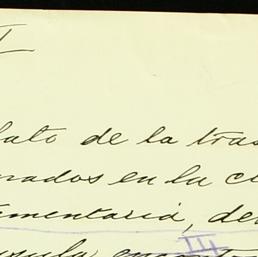 I
lato de la tras
nados en la cl
tamentaria, de
III